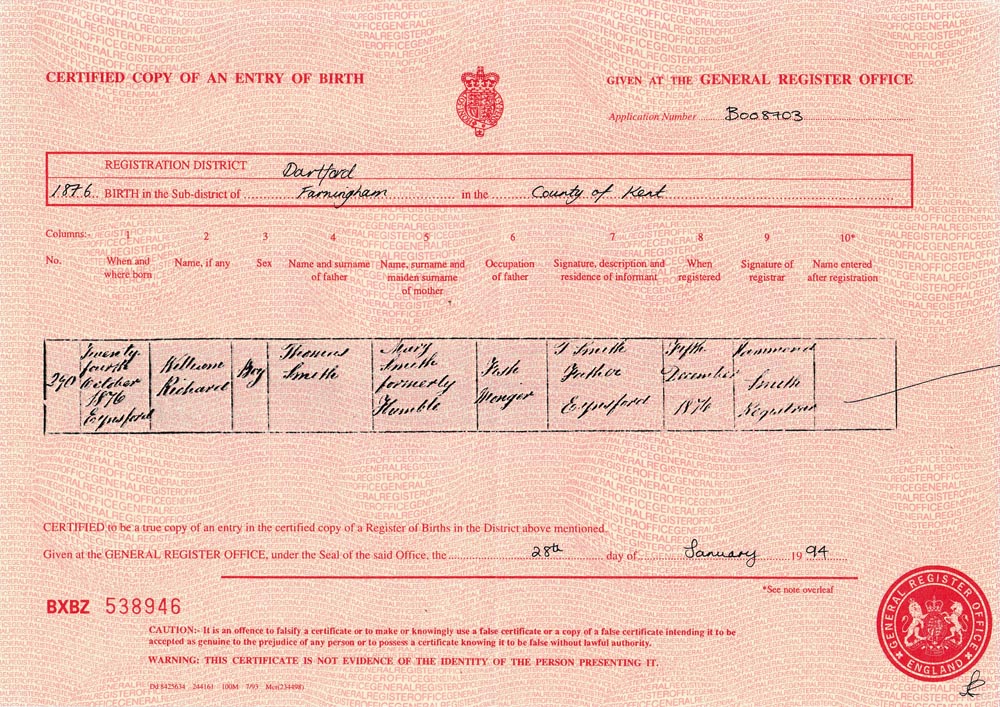 CERTIFIED COPY OF AN ENTRY OF BIRTH
GIVEN AT THE GENERAL REGISTER OFFICE
Application Number B008703
REGISTRATION DISTRICT Dartford
1876 BIRTH in the Sub-district of Farningham in the County of Kent
Columns:- 1 2 3 4 5 6 7 8 9 10*
No. When and where born
Name, if any
Sex
Name and surname of father
Name, surname and maiden surname of mother
Occupation of father
Signature, description and residence of informant
When registered
Signature of registrar
Name entered after registration
290
Twenty
fourth
October
1876
Eynsford
William
Richard
Boy
Thomas
Smith
Mary
Smith
formerly
Humble
Fish
Monger
T Smith
Father
Eynsford
Fifth
December
1876
Hammond
Smith
Registrar
CERTIFIED to be a true copy of an entry in the certified copy of a Register of Births in the District above mentioned.
Given at the GENERAL REGISTER OFFICE, under the Seal of the said Office, the 28th day of January 1994
*See note overleaf
BXBZ 538946
CAUTION:- It is an offence to falsify a certificate or to make or knowingly use a false certificate or a copy of a false certificate intending it to be
accepted as genuine to the prejudice of any person or to possess a certificate knowing it to be false without lawful authority.
WARNING: THIS CERTIFICATE IS NOT EVIDENCE OF THE IDENTITY OF THE PERSON PRESENTING IT.
Dd 8425634 244161 100M 7/93 Mcr(234498)
GENERAL REGISTER OFFICE
ENGLAND